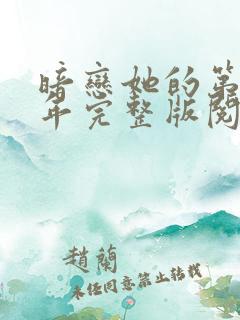 暗恋她的第
年完整版阅
趙蘭
未任同意禁止转载